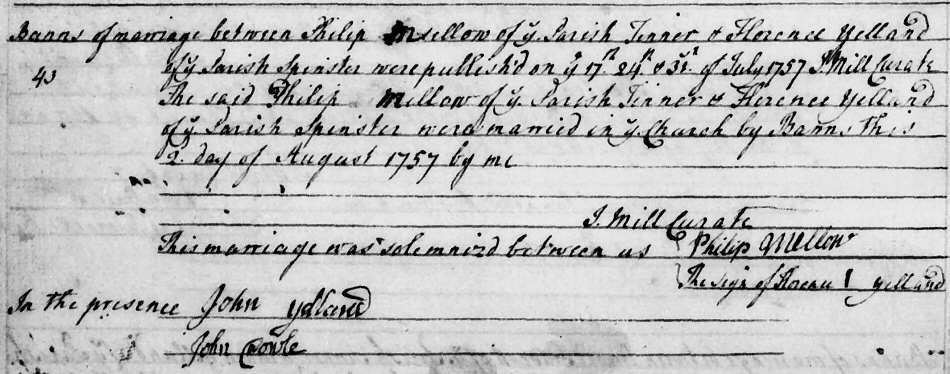 Banns of marriage between Philip Mellow of yͤ Parish Tinner & Florence Yelland
43
of yͤ Parish Spinster were publish'd on yͤ 17ᵗʰ 24ᵗʰ & 31ˢᵗ of July 1757 J. Mill Curate
The said Philip Mellow of yͤ Parish Tinner & Florence Yelland
of yͤ Parish Spinster were married in yͤ Church by Banns this
2. day of August 1757 by me
J. Mill Curate
This marriage was solemnizd between us Philip Mellow
The sign of Florence I Yelland
In the presence John Yelland
John Cowle